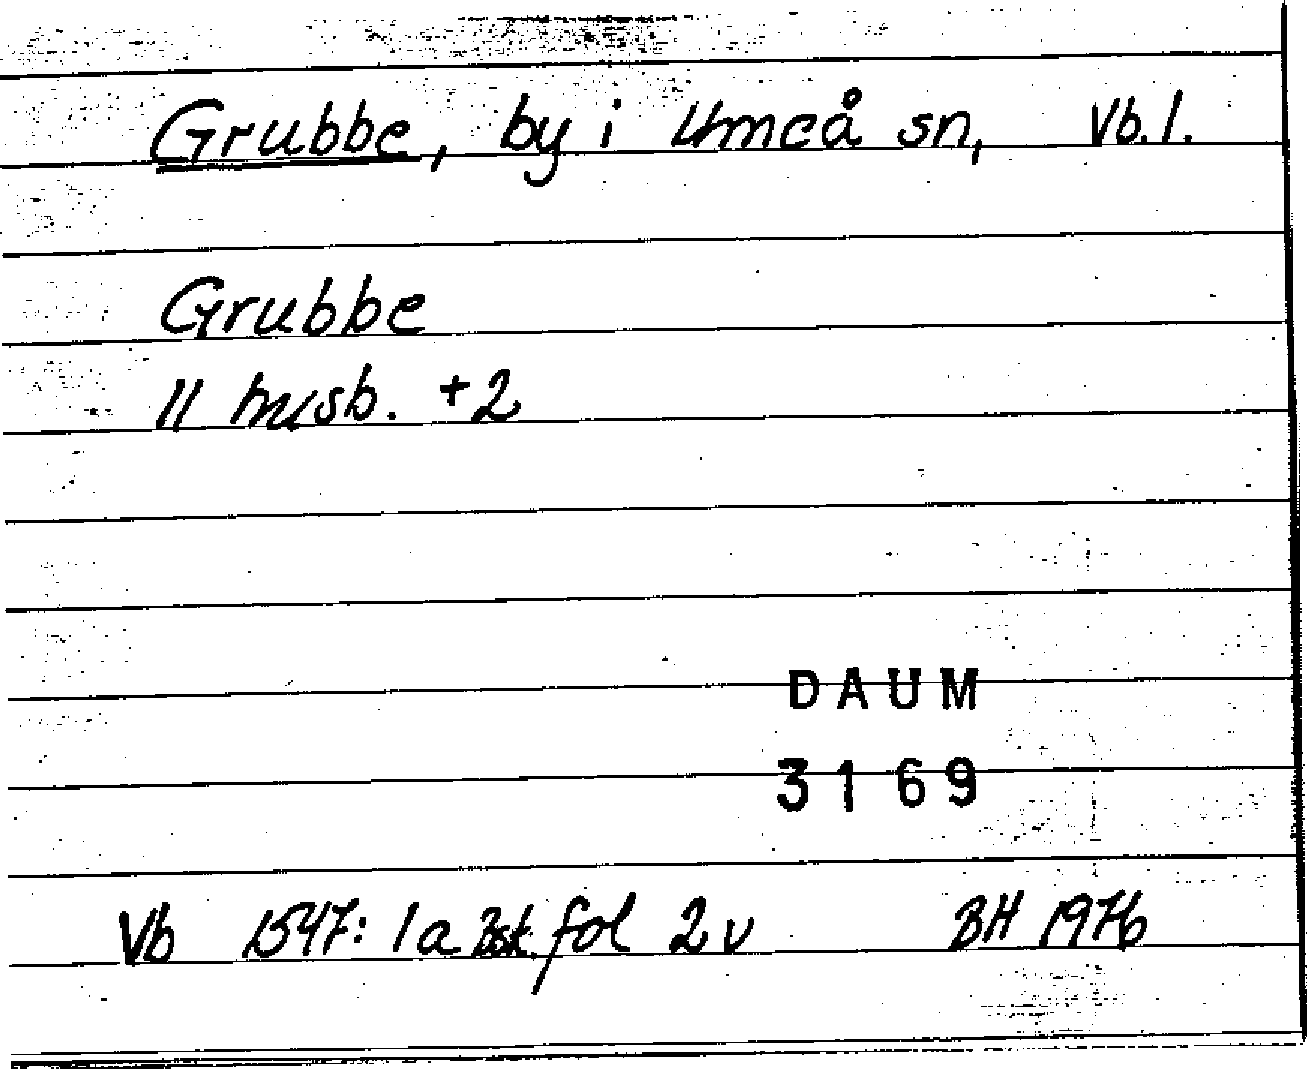 Grubbe, by i Umeå sn, Vb. l.
Grubbe
11 husb. +2
DAUM
3169
Vb 1547: 1a Bsk. fol 2v BH 1976